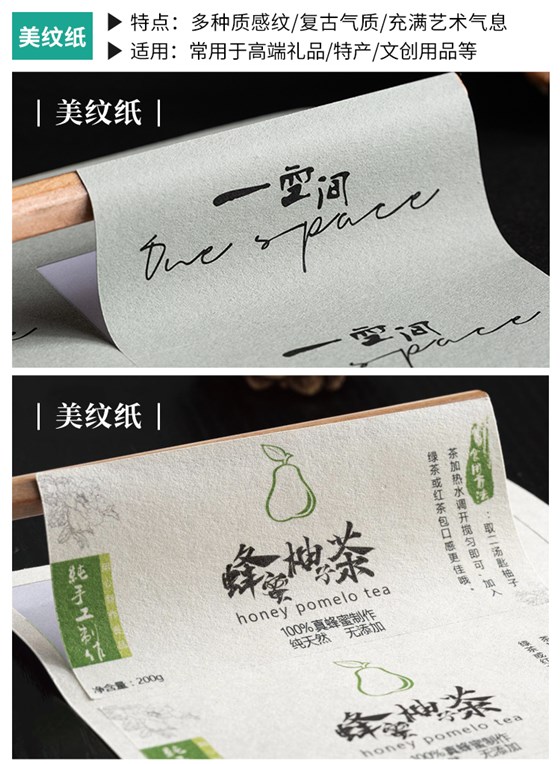 美纹纸
▶ 特点：多种质感纹/复古气质/充满艺术气息
▶ 适用：常用于高端礼品/特产/文创用品等
| 美纹纸 |
一空间
One space
一空间
space
| 美纹纸 |
食用方法
：取一汤匙柚子
茶加热水调开搅匀即可、加入
绿茶或红茶包口感更佳哦。
蜂蜜柚子茶
honey pomelo tea
100%真蜂蜜制作
纯天然 无添加
純手工制作
净含量：200g
蜂蜜柚子茶
honey pomelo tea
100%真蜂蜜制作
纯天然 无添加